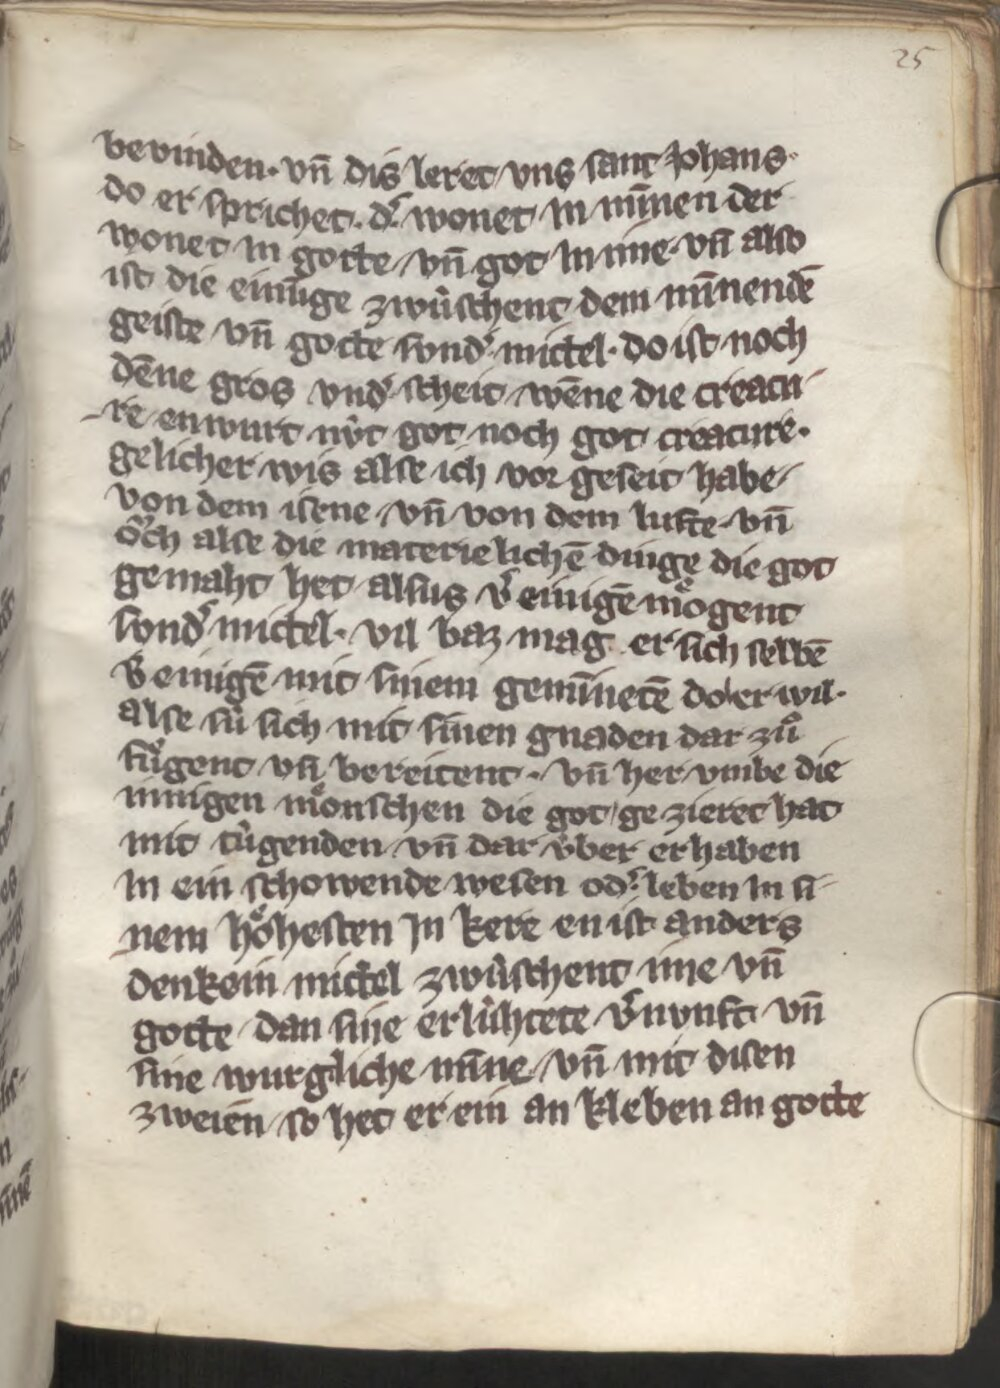 25
bevinden · vn̄ dis leret vns sant Johans ·
do er sprichet · d͛ wonet in mīnen der
wonet in gotte vn̄ got in ime · vn̄ also
ist die einūge zwúschent dem mīnendē
geiste vn̄ gotte sond͛ mittel · do ist noch
dēne gros vnd͛ scheit wēne die creatu
re enwurt nút got noch got creature ·
gelicher wis alse ich vor geseit habe
von dem isene vn̄ von dem lufte · vn̄
oͮch alse die materielichē dinge die got
gemaht het alsus v͛ einigē moͤgent
sond͛ mittel · vil baz mag er sich selbē
v͛ einigē mit sinem gemīnetē do er wil ·
alse sú sich mit sinen gnaden dar zuͦ
fuͤgent vn̄ bereitent · vn̄ her vmbe die
innigen moͤnschen die got ge zieret hat
mit túgenden vn̄ dar v́ber erhaben
in ein schowende wesen od͛ leben in si
nem hoͤhesten in kere en ist anders
denkein mittel zwúschent ime vn̄
gotte dan sine erlúhtete v͛nunft vn̄
sine wurgliche mīne vn̄ mit disen
zweien so het er ein an kleben an gotte